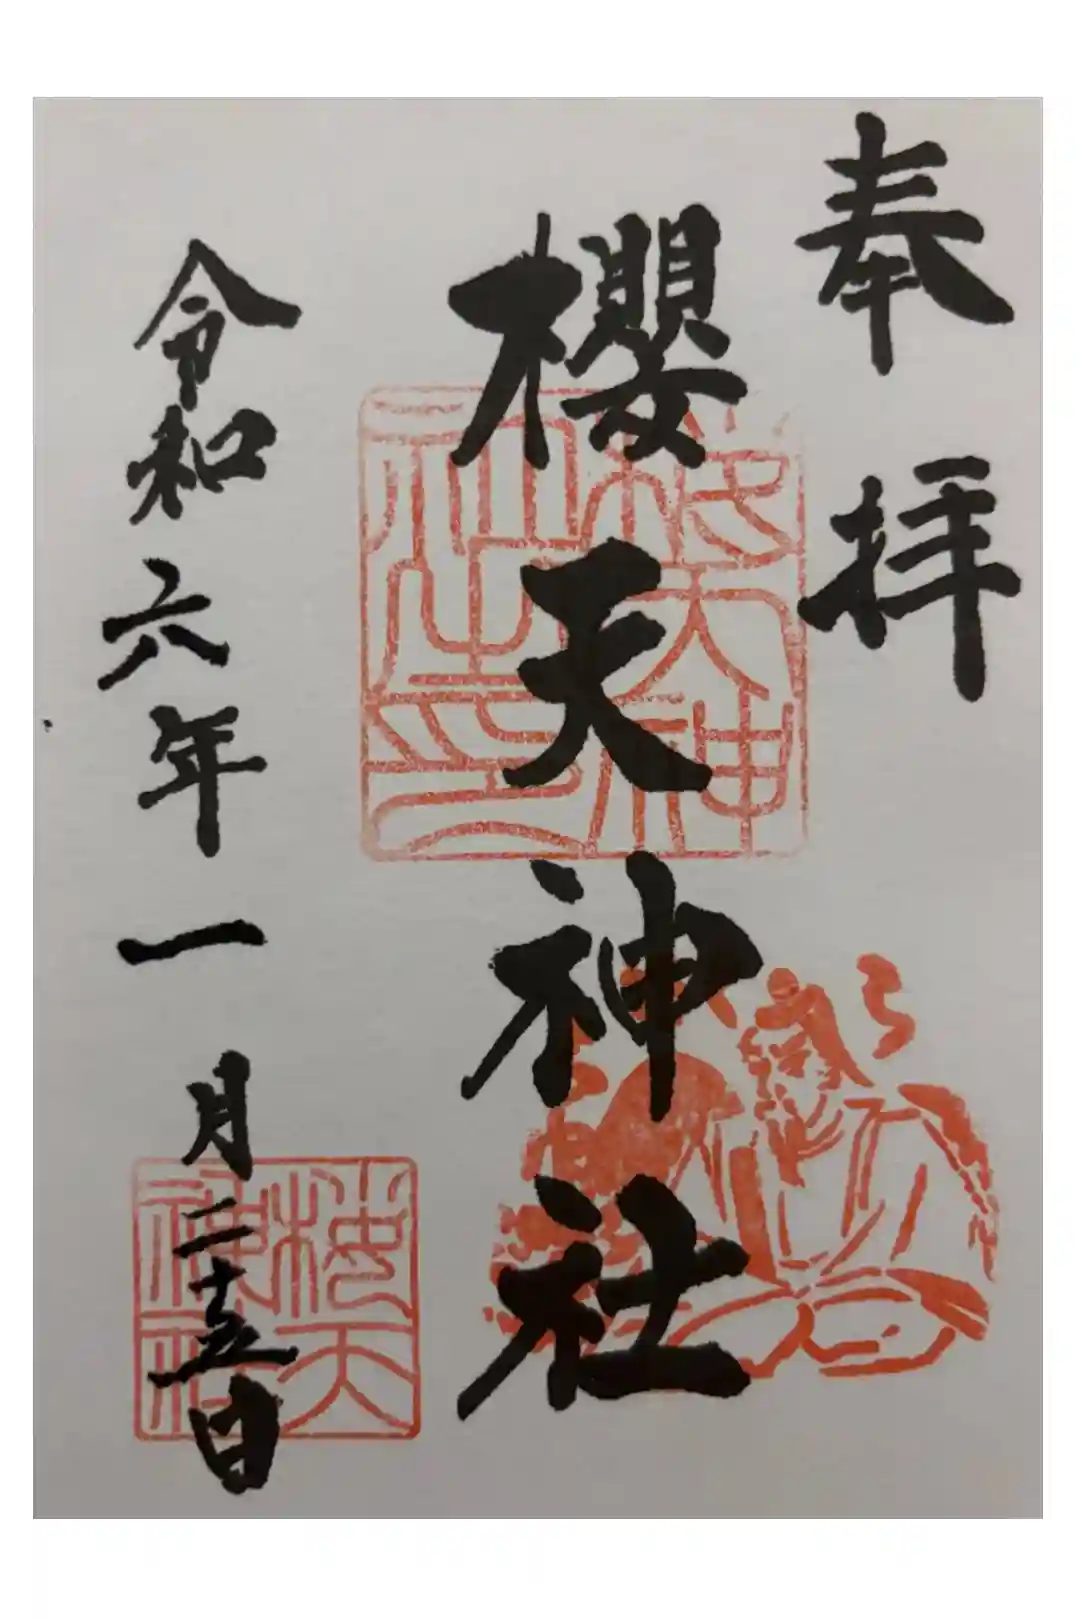 奉拝
櫻天神社
令和六年一月二十五日
櫻天神社之印
櫻天神社